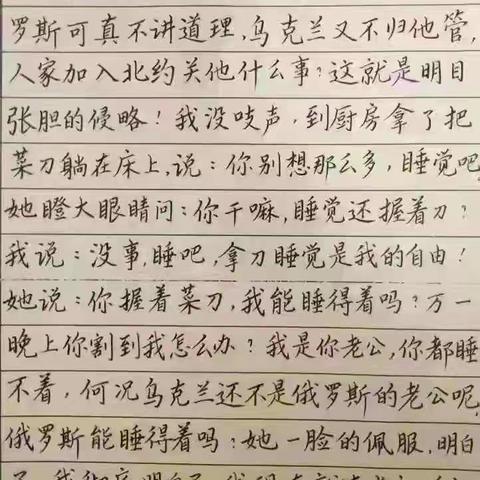 罗斯可真不讲道理,乌克兰又不归他管,
人家加入北约关他什么事?这就是明目
张胆的侵略!我没吱声,到厨房拿了把
菜刀躺在床上,说:你别想那么多,睡觉吧,
她瞪大眼睛问:你干嘛,睡觉还握着刀?
我说:没事,睡吧,拿刀睡觉是我的自由!
她说:你握着菜刀,我能睡得着吗?万一
晚上你割到我怎么办?我是你老公,你都睡
不着,何况乌克兰还不是俄罗斯的老公呢,
俄罗斯能睡得着吗?她一脸的佩服,明白